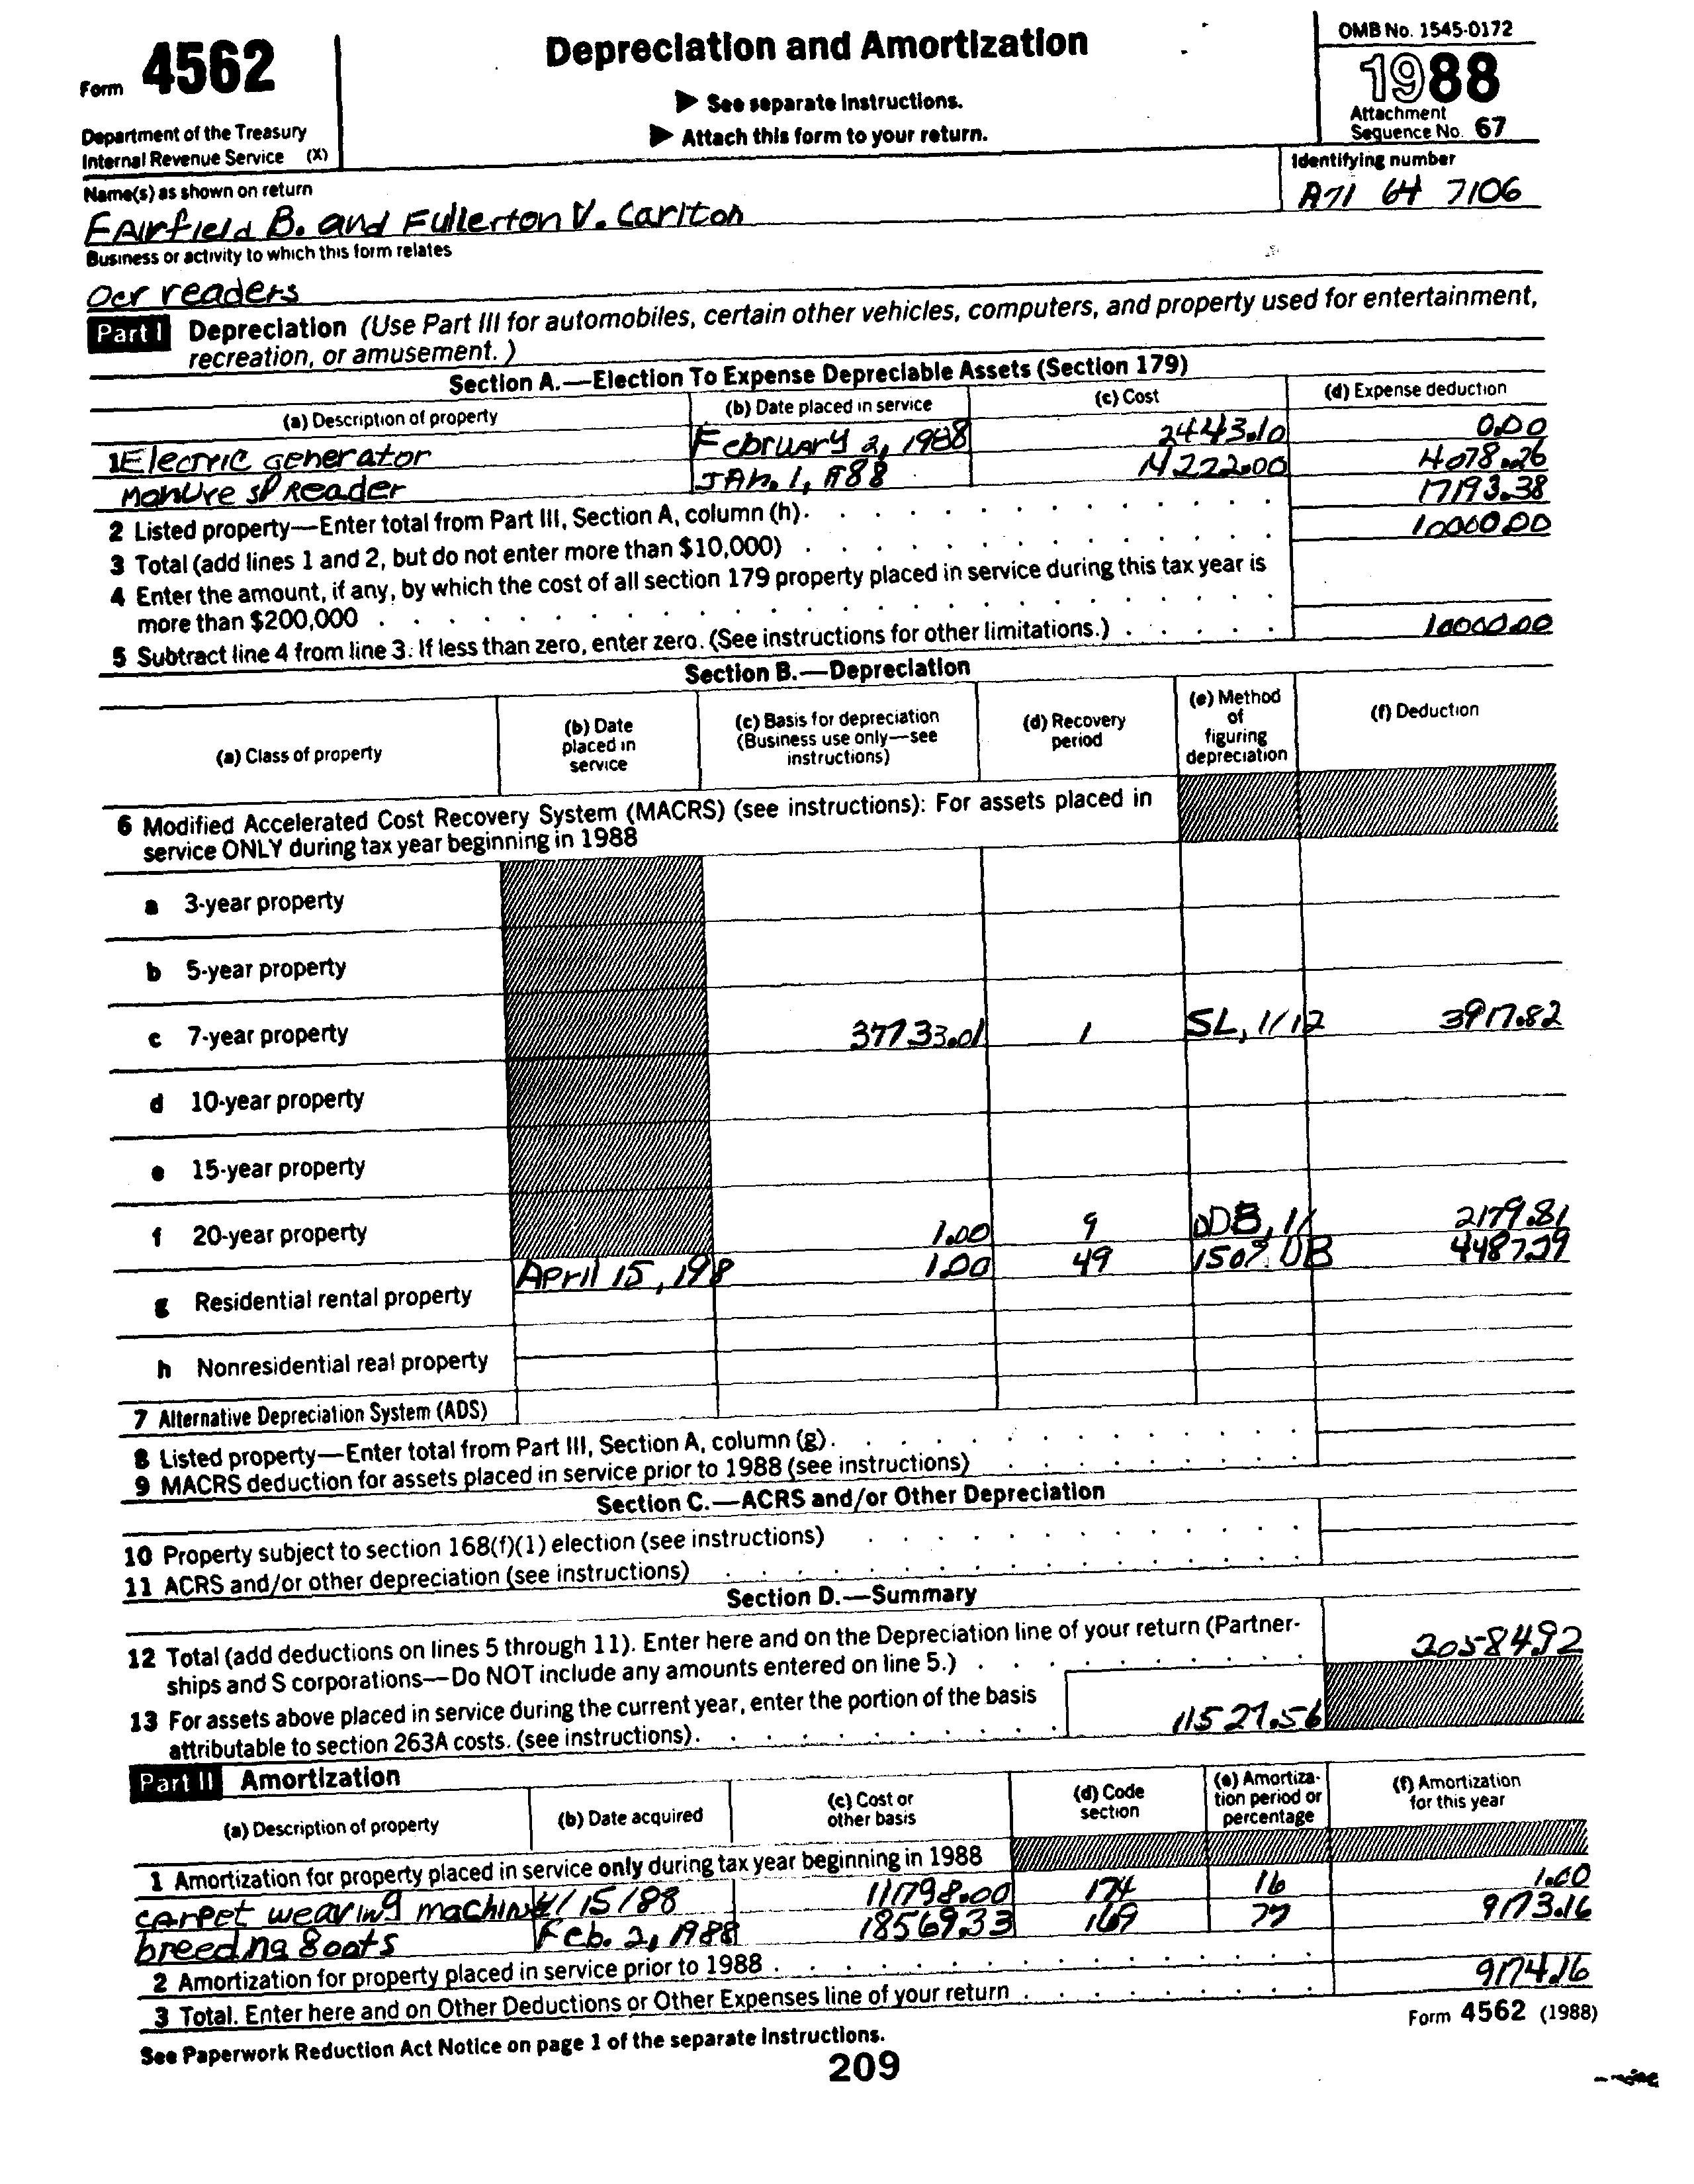 Form 4562
Department of the Treasury
Internal Revenue Service (X)
Depreciation and Amortization
▶ See separate instructions.
▶ Attach this form to your return.
OMB No. 1545-0172
1988
Attachment
Sequence No. 67
Name(s) as shown on return
Identifying number
FAIrfield B. and Fullerton V. Carlton
A71 64 7106
Business or activity to which this form relates
Ocr readers
Part I Depreciation (Use Part III for automobiles, certain other vehicles, computers, and property used for entertainment,
recreation, or amusement.)
Section A.—Election To Expense Depreciable Assets (Section 179)
(a) Description of property (b) Date placed in service (c) Cost (d) Expense deduction
1 Electric generator February 2, 1988 2443.10 0.00
Manure spreader JAn. 1, 1988 14222.00 4078.26
2 Listed property—Enter total from Part III, Section A, column (h). 17193.38
3 Total (add lines 1 and 2, but do not enter more than $10,000) 10000.00
4 Enter the amount, if any, by which the cost of all section 179 property placed in service during this tax year is
more than $200,000
5 Subtract line 4 from line 3. If less than zero, enter zero. (See instructions for other limitations.) 10000.00
Section B.—Depreciation
(a) Class of property (b) Date placed in service (c) Basis for depreciation (Business use only—see instructions) (d) Recovery period (e) Method of figuring depreciation (f) Deduction
6 Modified Accelerated Cost Recovery System (MACRS) (see instructions): For assets placed in
service ONLY during tax year beginning in 1988
a 3-year property
b 5-year property
c 7-year property 37733.01 1 SL, 1/12 3917.82
d 10-year property
e 15-year property
f 20-year property 1.00 9 DDB, 1/ 2179.81
g Residential rental property April 15, 198 1.00 49 150% DB 4487.29
h Nonresidential real property
7 Alternative Depreciation System (ADS)
8 Listed property—Enter total from Part III, Section A, column (g).
9 MACRS deduction for assets placed in service prior to 1988 (see instructions)
Section C.—ACRS and/or Other Depreciation
10 Property subject to section 168(f)(1) election (see instructions)
11 ACRS and/or other depreciation (see instructions)
Section D.—Summary
12 Total (add deductions on lines 5 through 11). Enter here and on the Depreciation line of your return (Partner-
ships and S corporations—Do NOT include any amounts entered on line 5.) 20584.92
13 For assets above placed in service during the current year, enter the portion of the basis
attributable to section 263A costs. (see instructions). 11527.56
Part II Amortization
(a) Description of property (b) Date acquired (c) Cost or other basis (d) Code section (e) Amortization period or percentage (f) Amortization for this year
1 Amortization for property placed in service only during tax year beginning in 1988
carpet weaving machine 4/15/88 11798.00 174 16 1.00
breeding goats Feb. 2, 1988 18569.33 169 77 9173.16
2 Amortization for property placed in service prior to 1988
3 Total. Enter here and on Other Deductions or Other Expenses line of your return 9174.16
See Paperwork Reduction Act Notice on page 1 of the separate instructions.
Form 4562 (1988)
209